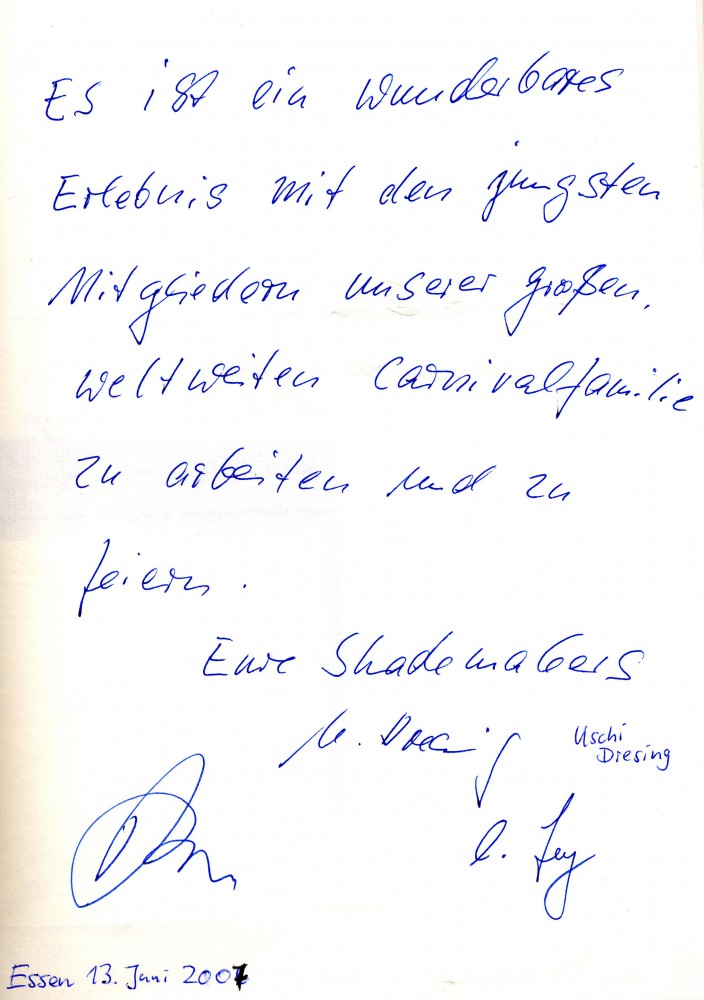 Es ist ein wunderbares
Erlebnis mit den jungsten
Mitgliedern unserer großen,
weltweiten Carnivalfamilie
zu arbeiten und zu
feiern.
Eure Shademakers
Uschi
Diesing
Essen 13. Juni 2007